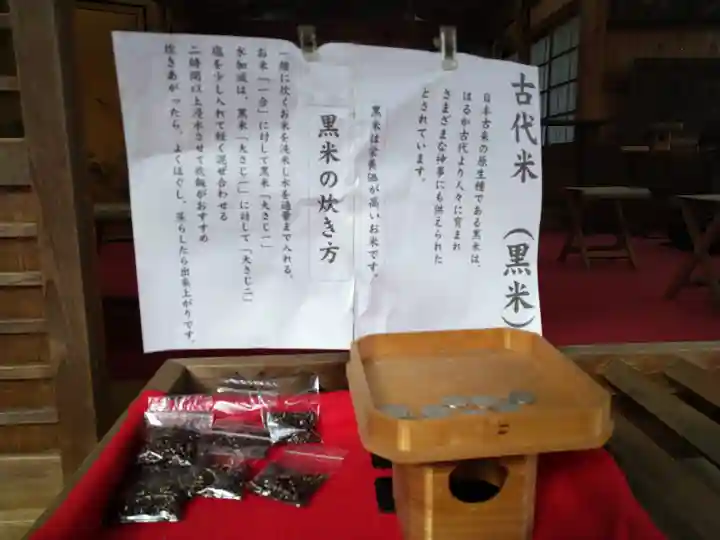 古代米（黒米）
日本古来の原生種である黒米は、
はるか古代より人々に育まれ
さまざまな神事にも供えられた
とされています。
黒米は栄養価が高いお米です。
黒米の炊き方
一般に炊くお米を洗米し水を通常まで入れる。
お米「一合」に対して黒米「大さじ一」
水加減は、黒米「大さじ一」に対して「大さじ二」
塩を少し入れて軽く混ぜ合わせる
二時間以上浸水させて炊飯がおすすめ
炊きあがったら、よくほぐし、蒸らしたら出来上がりです。